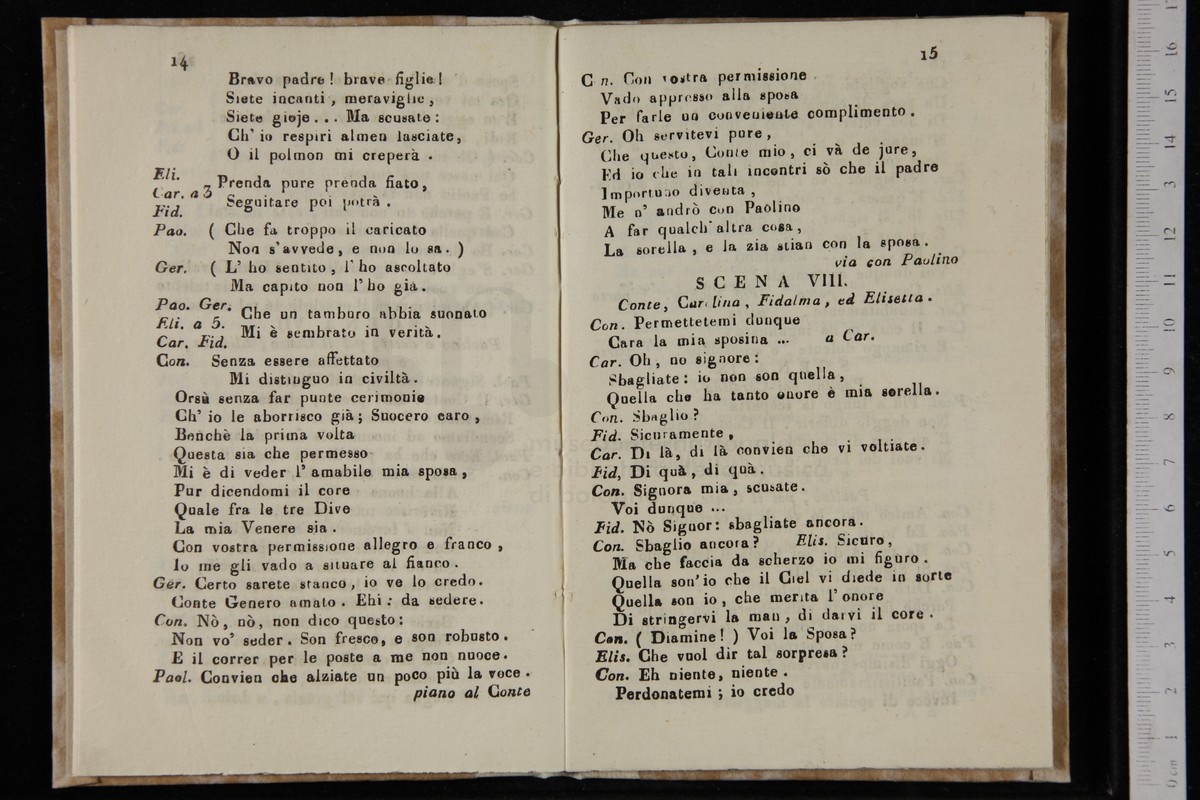 14
Bravo padre! brave figlie!
Siete incanti, meraviglie,
Siete gioje... Ma scusate:
Ch' io respiri almen lasciate,
O il polmon mi creperà.
Eli.
Car. a 3 Prenda pure prenda fiato,
Fid. Seguitare poi potrà.
Pao. ( Che fa troppo il caricato
Non s'avvede, e non lo sa. )
Ger. ( L' ho sentito, l' ho ascoltato
Ma capito non l' ho già.
Pao. Ger. Che un tamburo abbia suonato
Eli. a 5. Mi è sembrato in verità.
Car. Fid.
Con. Senza essere affettato
Mi distinguo in civiltà.
Orsù senza far punte cerimonie
Ch' io le aborrisco già; Suocero caro,
Benchè la prima volta
Questa sia che permesso
Mi è di veder l' amabile mia sposa,
Pur dicendomi il core
Quale fra le tre Dive
La mia Venere sia.
Con vostra permissione allegro e franco,
Io me gli vado a situare al fianco.
Ger. Certo sarete stanco, io ve lo credo.
Conte Genero amato. Ehi: da sedere.
Con. Nò, nò, non dico questo:
Non vo' seder. Son fresco, e son robusto.
E il correr per le poste a me non nuoce.
Paol. Convien che alziate un poco più la voce.
piano al Conte
15
C n. Con vostra permissione
Vado appresso alla sposa
Per farle un conveniente complimento.
Ger. Oh servitevi pure,
Che questo, Conte mio, ci và de jure,
Ed io che in tali incontri sò che il padre
Importuno diventa,
Me n' andrò con Paolino
A far qualch' altra cosa,
La sorella, e la zia stian con la sposa.
via con Paolino
SCENA VIII.
Conte, Carolina, Fidalma, ed Elisetta.
Con. Permettetemi dunque
Cara la mia sposina ... a Car.
Car. Oh, no signore:
Sbagliate: io non son quella,
Quella che ha tanto onore è mia sorella.
Con. Sbaglio?
Fid. Sicuramente,
Car. Di là, di là convien che vi voltiate.
Fid, Di quà, di quà.
Con. Signora mia, scusate.
Voi dunque ...
Fid. Nò Signor: sbagliate ancora.
Con. Sbaglio ancora? Elis. Sicuro,
Ma che faccia da scherzo io mi figuro.
Quella son' io che il Ciel vi diede in sorte
Quella son io, che merita l' onore
Di stringervi la man, di darvi il core.
Con. ( Diamine! ) Voi la Sposa?
Elis. Che vuol dir tal sorpresa?
Con. Eh niente, niente.
Perdonatemi; io credo